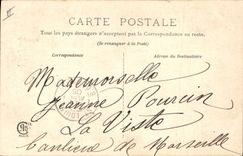 CARTE POSTALE
Tous les pays étrangers n'acceptent pas la Correspondance au recto.
(Se renseigner à la Poste)
Correspondance
Adresse du destinataire
Mademoiselle
Jeanne Pourcin
La Viste
banlieue de Marseille